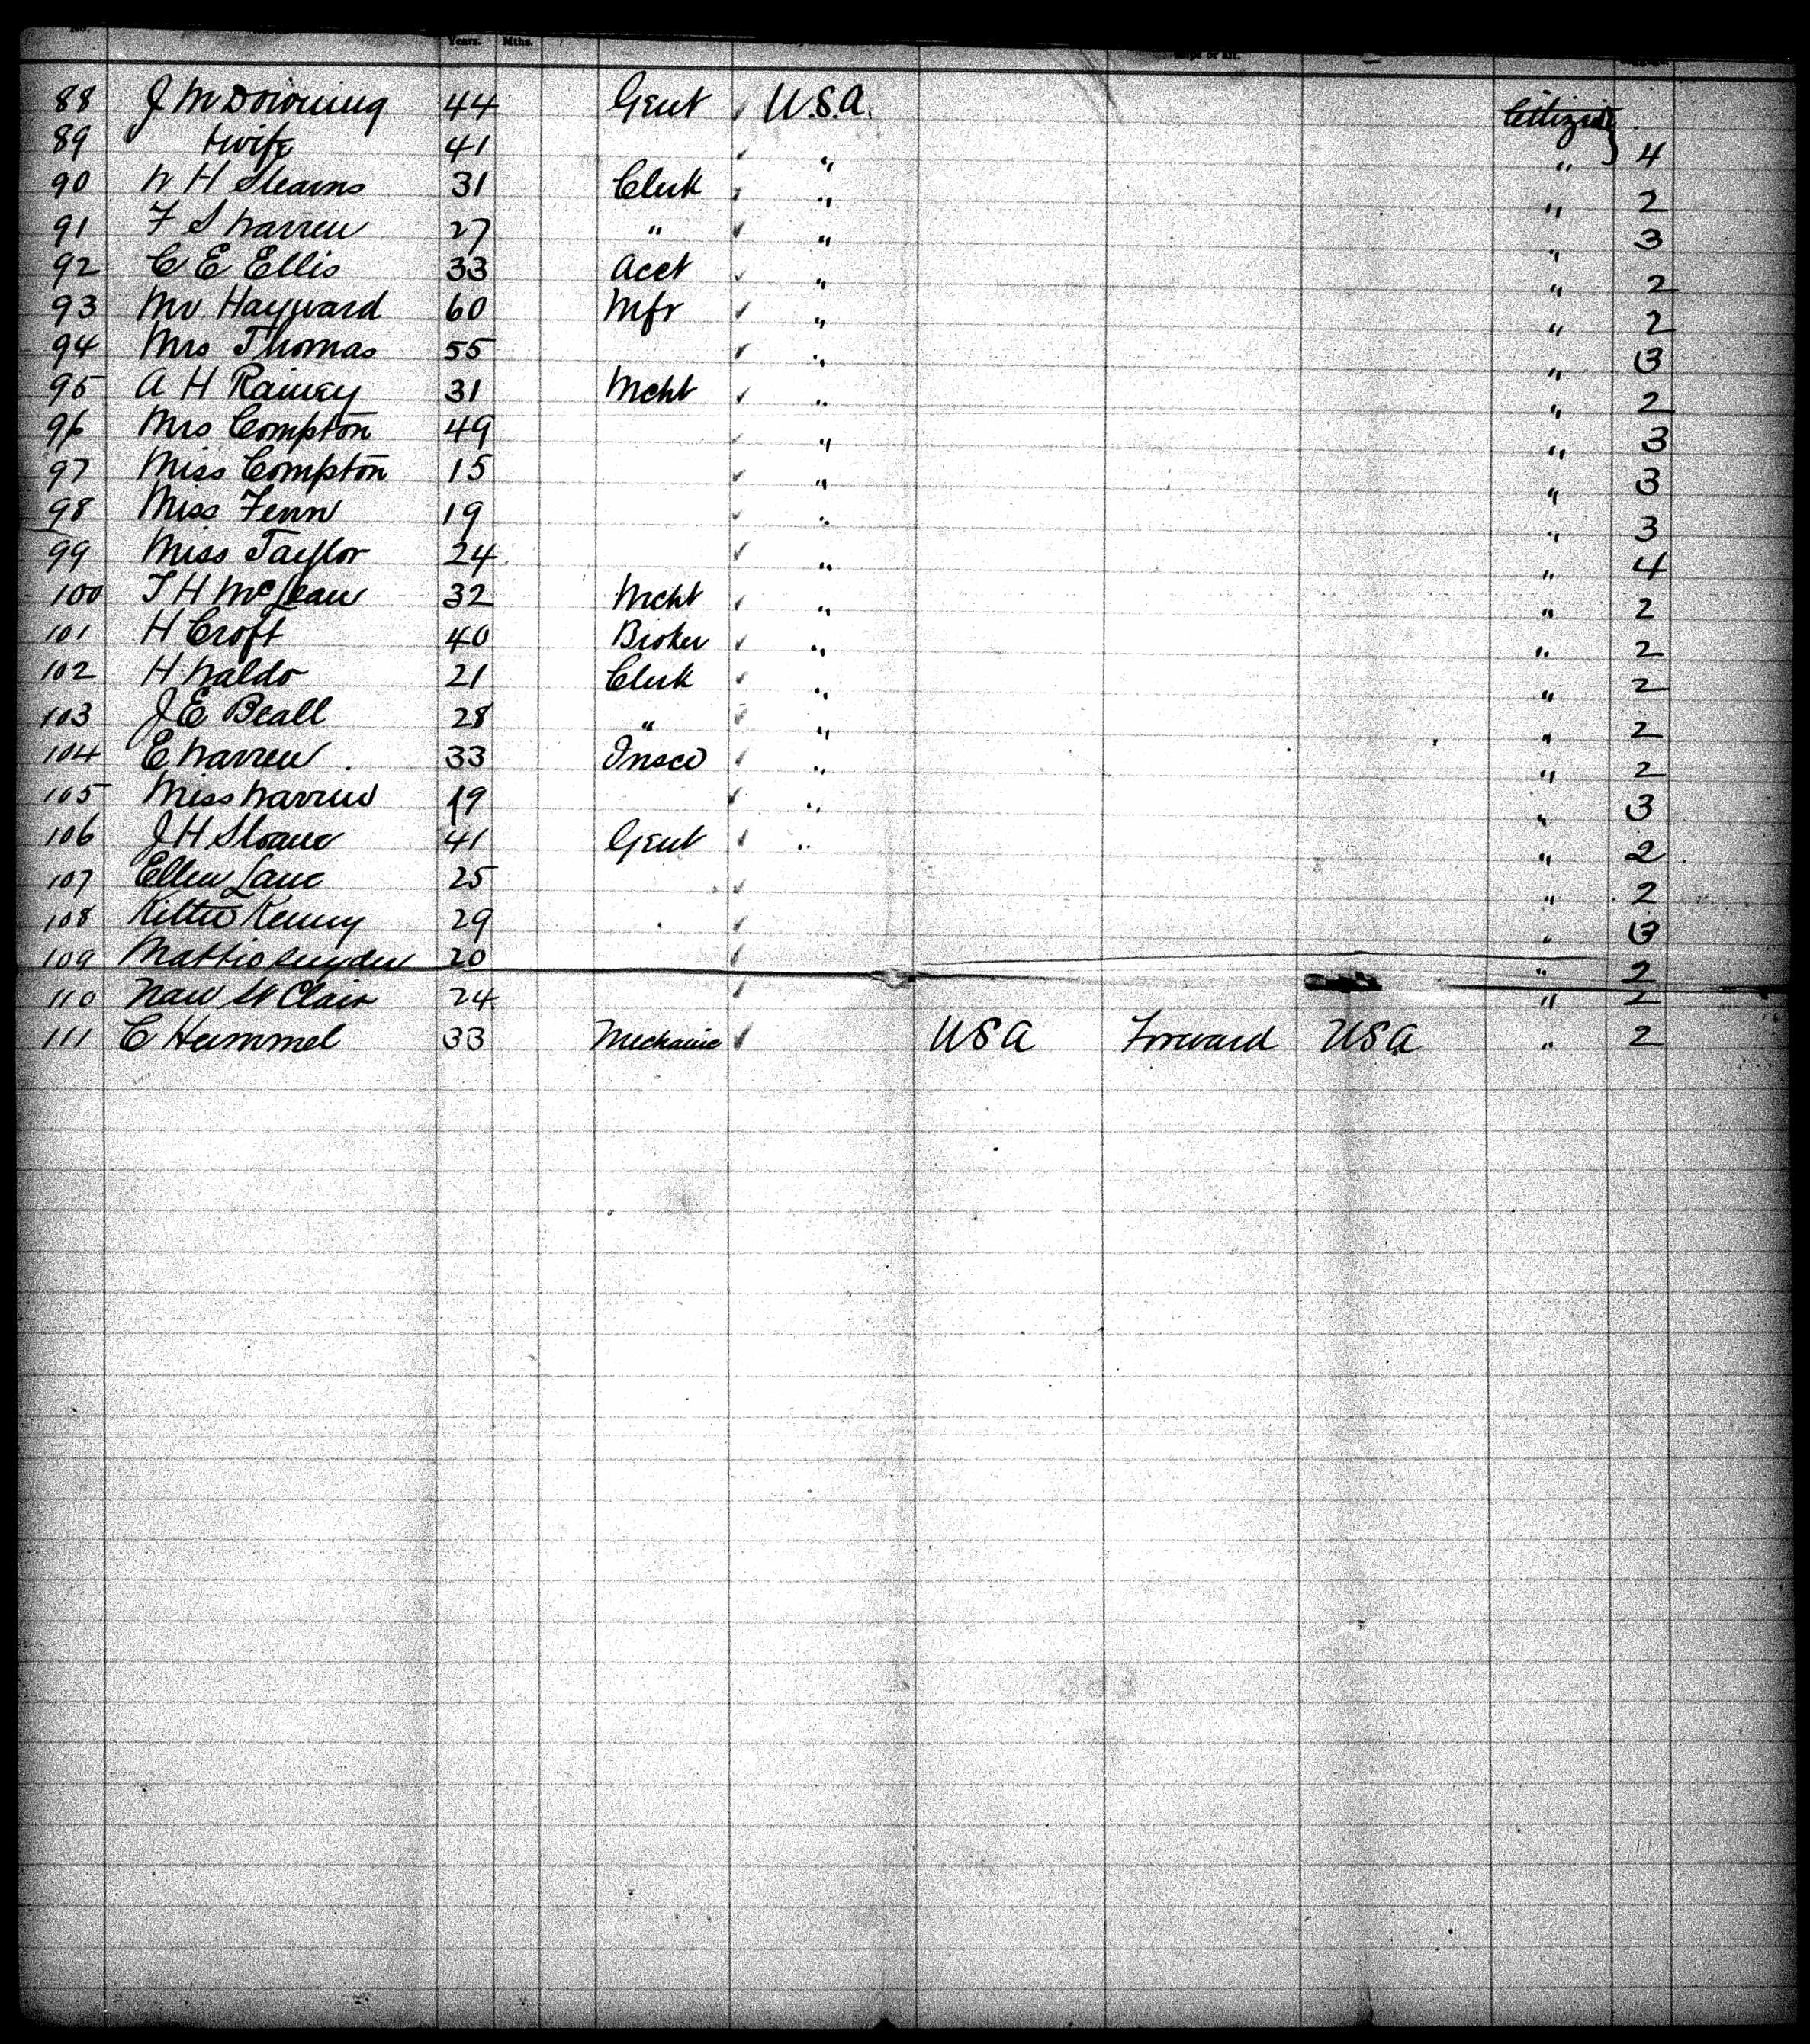 No. Years. Mths.
88 J M Downing 44 Gent U.S.A. Citizens
89 + wife 41 " " 4
90 W H Stearns 31 Clerk " " 2
91 F S Warren 27 " " " 3
92 C E Ellis 33 Acct " " 2
93 Mr Hayward 60 Mfr " " 2
94 Mrs Thomas 55 " " 3
95 A H Rainey 31 Mcht " " 2
96 Mrs Compton 49 " " 3
97 Miss Compton 15 " " 3
98 Miss Fenn 19 " " 3
99 Miss Taylor 24 " " 4
100 T H McLean 32 Mcht " " 2
101 H Croft 40 Broker " " 2
102 H Waldo 21 Clerk " " 2
103 J E Beall 28 " " " 2
104 E Warren 33 " " 2
105 Miss Warren 19 " " 3
106 J H Sloane 41 Gent " " 2
107 Ellen Lane 25 " 2
108 Kittie Kenny 29 " 3
109 Mattie Snyder 20 " 2
110 St Clair 24 " 2
111 C Hummel 33 Mechanic USA Forward USA " 2